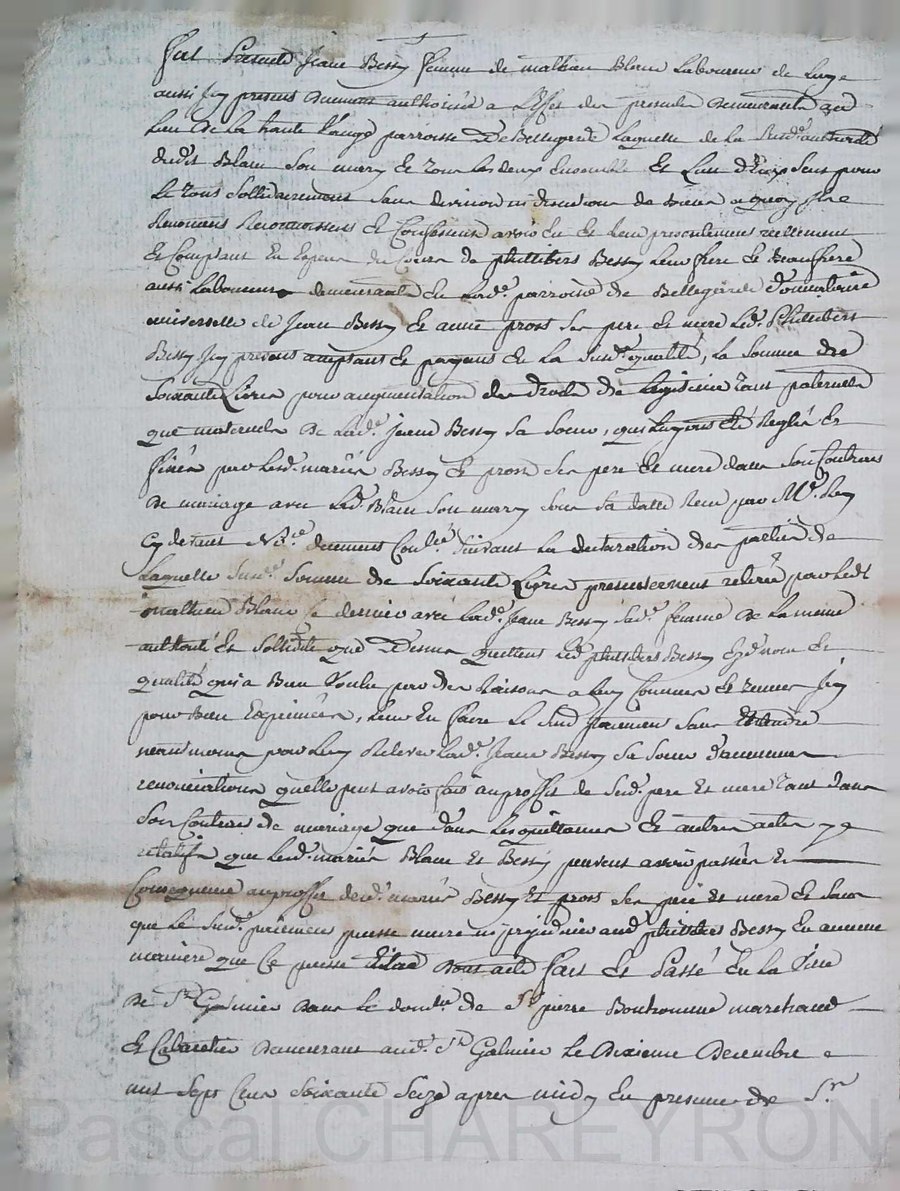 fut Presente Jeane Bessy femme de mathieu Blanc Laboureur de Luy
aussi Icy present duement authorisée a L'effet des presentes demeurants au
Lieu de La haute Rauge parroisse De Bellegarde Laquelle de La susd.e authorité
dudit Blanc son mary et tous Les deux Ensemble et L'un d'Eux seul pour
Le tous sollidairement sans division ni discution de biens a quoy
Renoncent Reconnoissent et Confessent avoir eu et Reçu presentement reellement
et Comptant En Especes du Cours de phillibert Bessy Leur frere et Beaufrere
aussi Laboureur demeurant En Lad.e parroisse de Bellegarde Donnataire
universelle de Jean Bessy et anne pross Ses pere et mere Led. Phillibert
Bessy Icy present acceptant et payant En La susd.e qualité, La somme de
Soixante Livres pour augmentation des droits de Legitime tant paternelle
que maternelle de Lad.e Jeane Bessy Sa Soeur, qui Luy ont été Reglés et
finés par Lesd. mariés Bessy et pross Ses pere et mere dans Son Contrat
de mariage avec Led. Blanc Son mary sous Sa datte Reçu par M.e
Cy devant No.re duement Con.lé Suivant La declaration des parties de
Laquelle Sus.e Somme de Soixante Livres presentement retirée par Led.
mathieu Blanc Ce dernier avec Lad.e Jeane Bessy Sad.e femme de La meme
authorité et Sollidité que Dessus quittent Led. phillibert Bessy esd. nom et
qualité qui a Bien Voulu pour des Raisons a Luy Connues et
pour Bien Exprimées, Leur En faire Le susd. paiement sans Entendre
neanmoins par Luy Relever Lad.e Jeane Bessy Sa Soeur D'aucunes
renonciations quelle peut avoir fait au proffit de Sesd. pere et mere tant dans
Son Contrat de mariage que dans Les quittances et autres actes
relatifs que Lesd. mariés Blanc et Bessy peuvent avoir passés En
Consequence au proffit desd. mariés Bessy et pross Ses pere et mere et Sans
que Le Susd. paiement puisse nuire ni prejudicier aud. phillibert Bessy En aucune
maniere que Ce puisse Etre dont acte fait et Passé En La Ville
de St Galmier dans Le domi.le de Sr pierre Bonhomme marchand
et Cabaretier demeurant aud. St Galmier Le dixieme decembre
mil Sept Cent Soixante Seize apres midy En presence de Sr
Pascal CHAREYRON